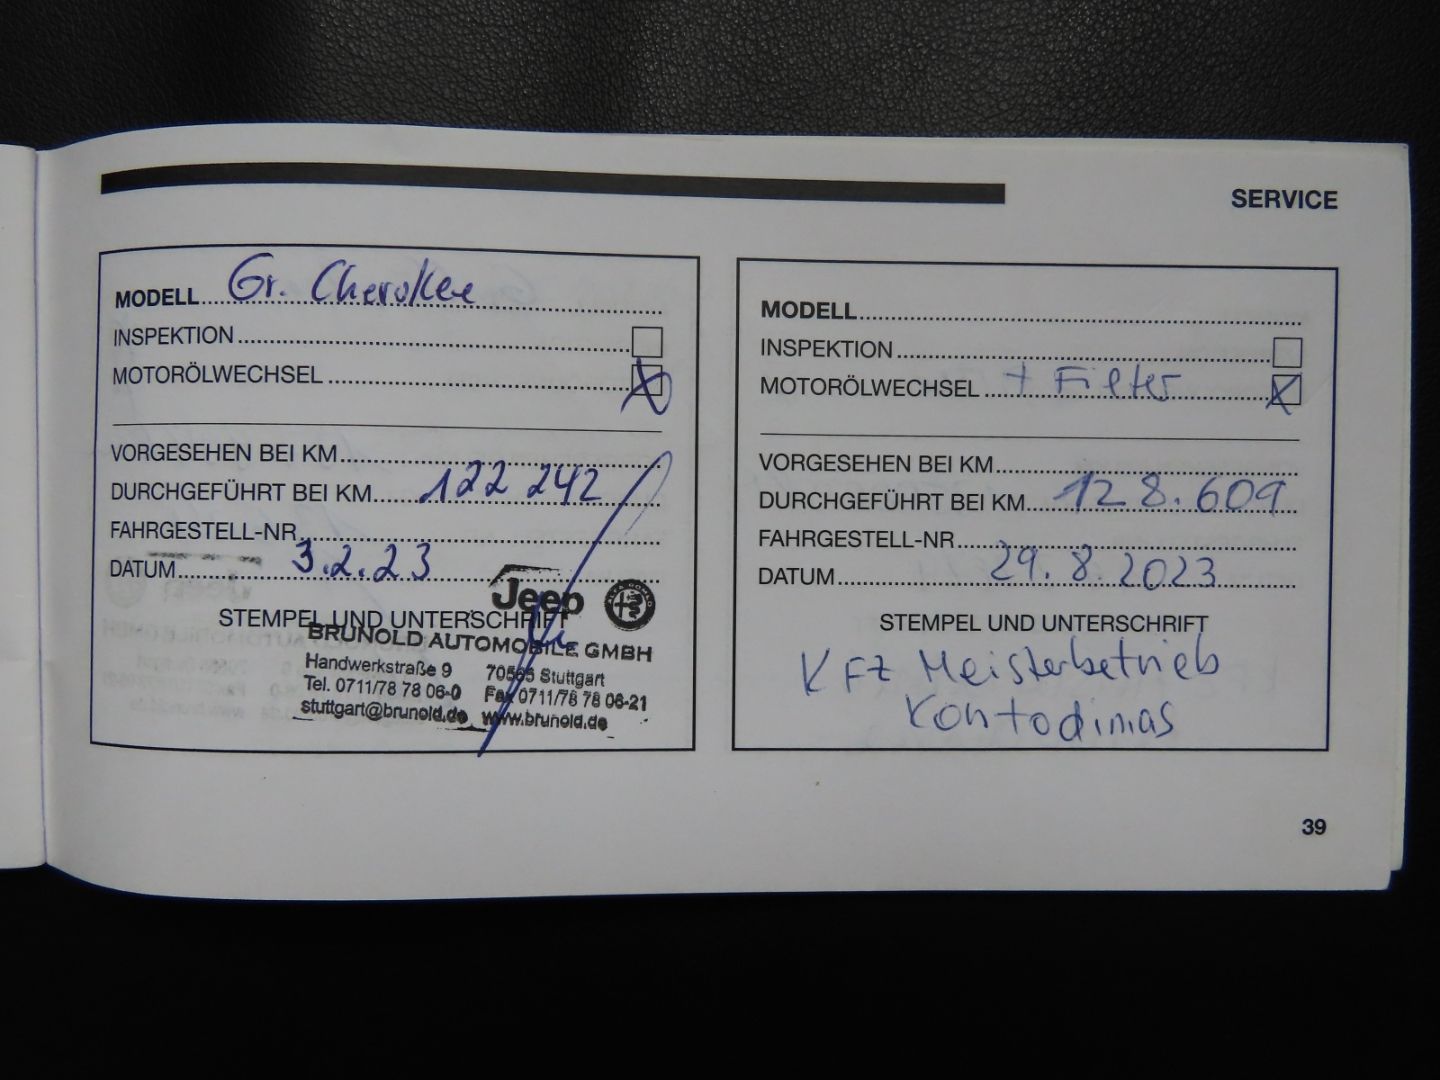 SERVICE
MODELL Gr. Cherokee
INSPEKTION
MOTORÖLWECHSEL
VORGESEHEN BEI KM
DURCHGEFÜHRT BEI KM 122 242
FAHRGESTELL-NR
DATUM 3.2.23
STEMPEL UND UNTERSCHRIFT
Jeep
BRUNOLD AUTOMOBILE GMBH
Handwerkstraße 9 70565 Stuttgart
Tel. 0711/78 78 06-0 Fax 0711/78 78 06-21
stuttgart@brunold.de www.brunold.de
MODELL
INSPEKTION
MOTORÖLWECHSEL + Filter
VORGESEHEN BEI KM
DURCHGEFÜHRT BEI KM 128.609
FAHRGESTELL-NR
DATUM 29.8.2023
STEMPEL UND UNTERSCHRIFT
KFZ Meisterbetrieb
Kontodimas
39